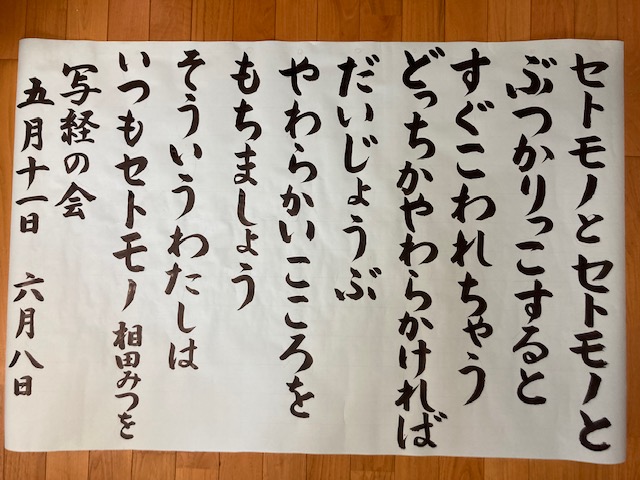 セトモノとセトモノと
ぶつかりっこすると
すぐこわれちゃう
どっちかやわらかければ
だいじょうぶ
やわらかいこころを
もちましょう
そういうわたしは
いつもセトモノ 相田みつを
写経の会
五月十一日 六月八日